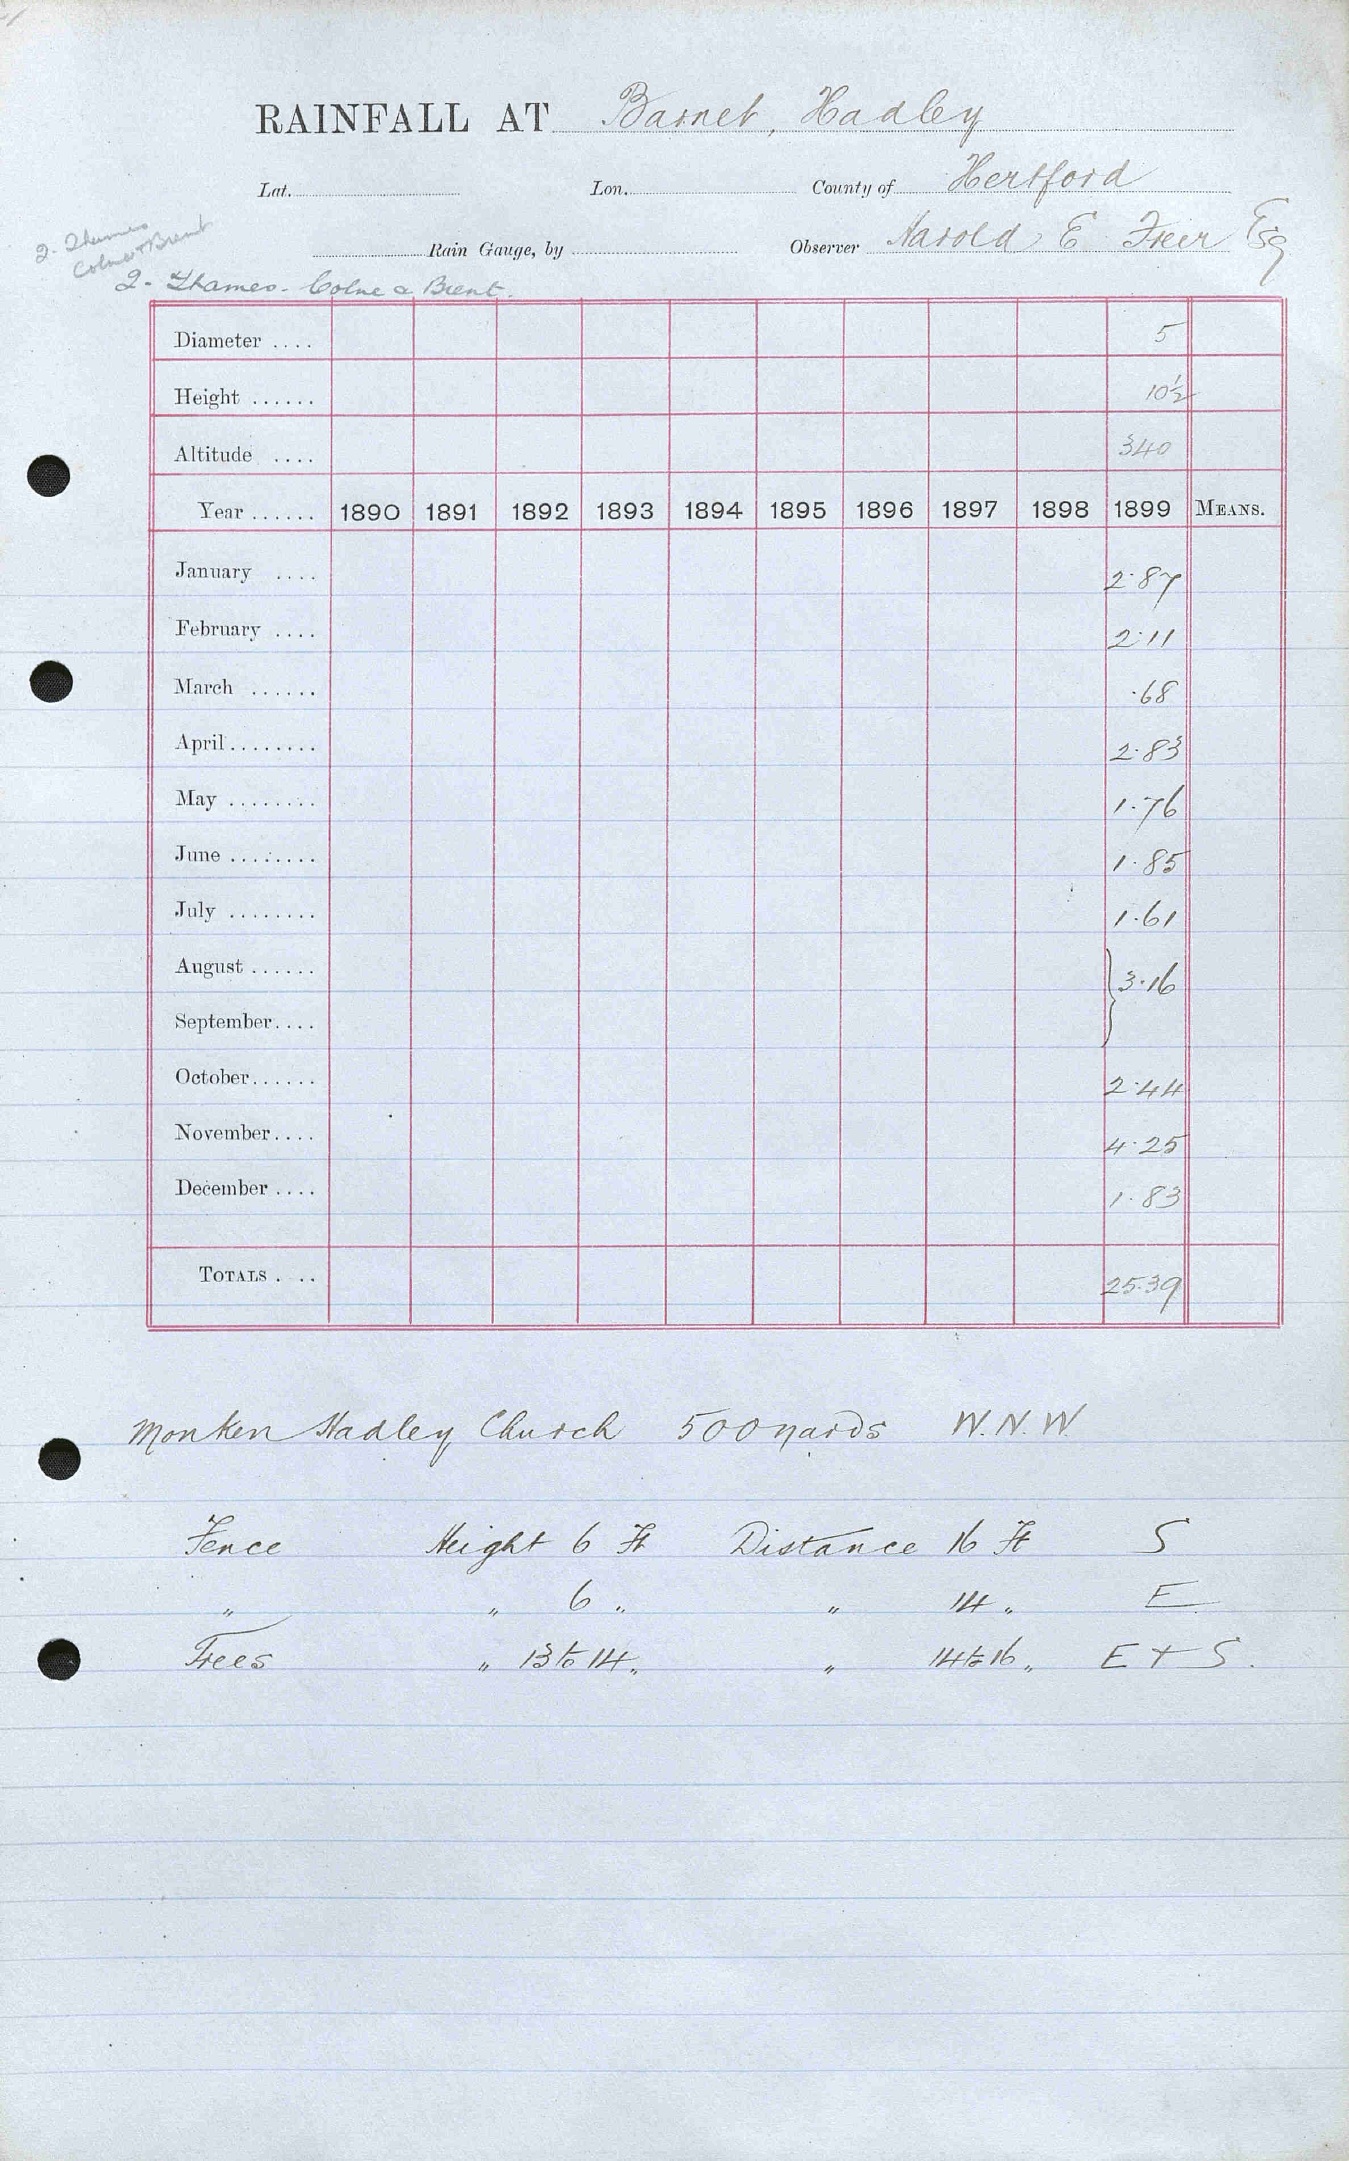 RAINFALL AT Barnet, Hadley
Lat. Lon. County of Hertford
2. Thames
Colne & Brent
Rain Gauge, by Observer Harold E Freer Esq
2. Thames. Colne & Brent.
Diameter .... 5
Height ...... 10½
Altitude .... 340
Year ...... 1890 1891 1892 1893 1894 1895 1896 1897 1898 1899 MEANS.
January .... 2.87
February .... 2.11
March ...... .68
April ........ 2.83
May ........ 1.76
June ........ 1.85
July ........ 1.61
August ...... } 3.16
September ....
October ...... 2.44
November .... 4.25
December .... 1.83
TOTALS .... 25.39
Monken Hadley Church 500 yards W.N.W.
Fence Height 6 Ft Distance 16 Ft S
" " 6 " " 14 " E
Trees " 13 to 14 " " 14 to 16 " E + S.